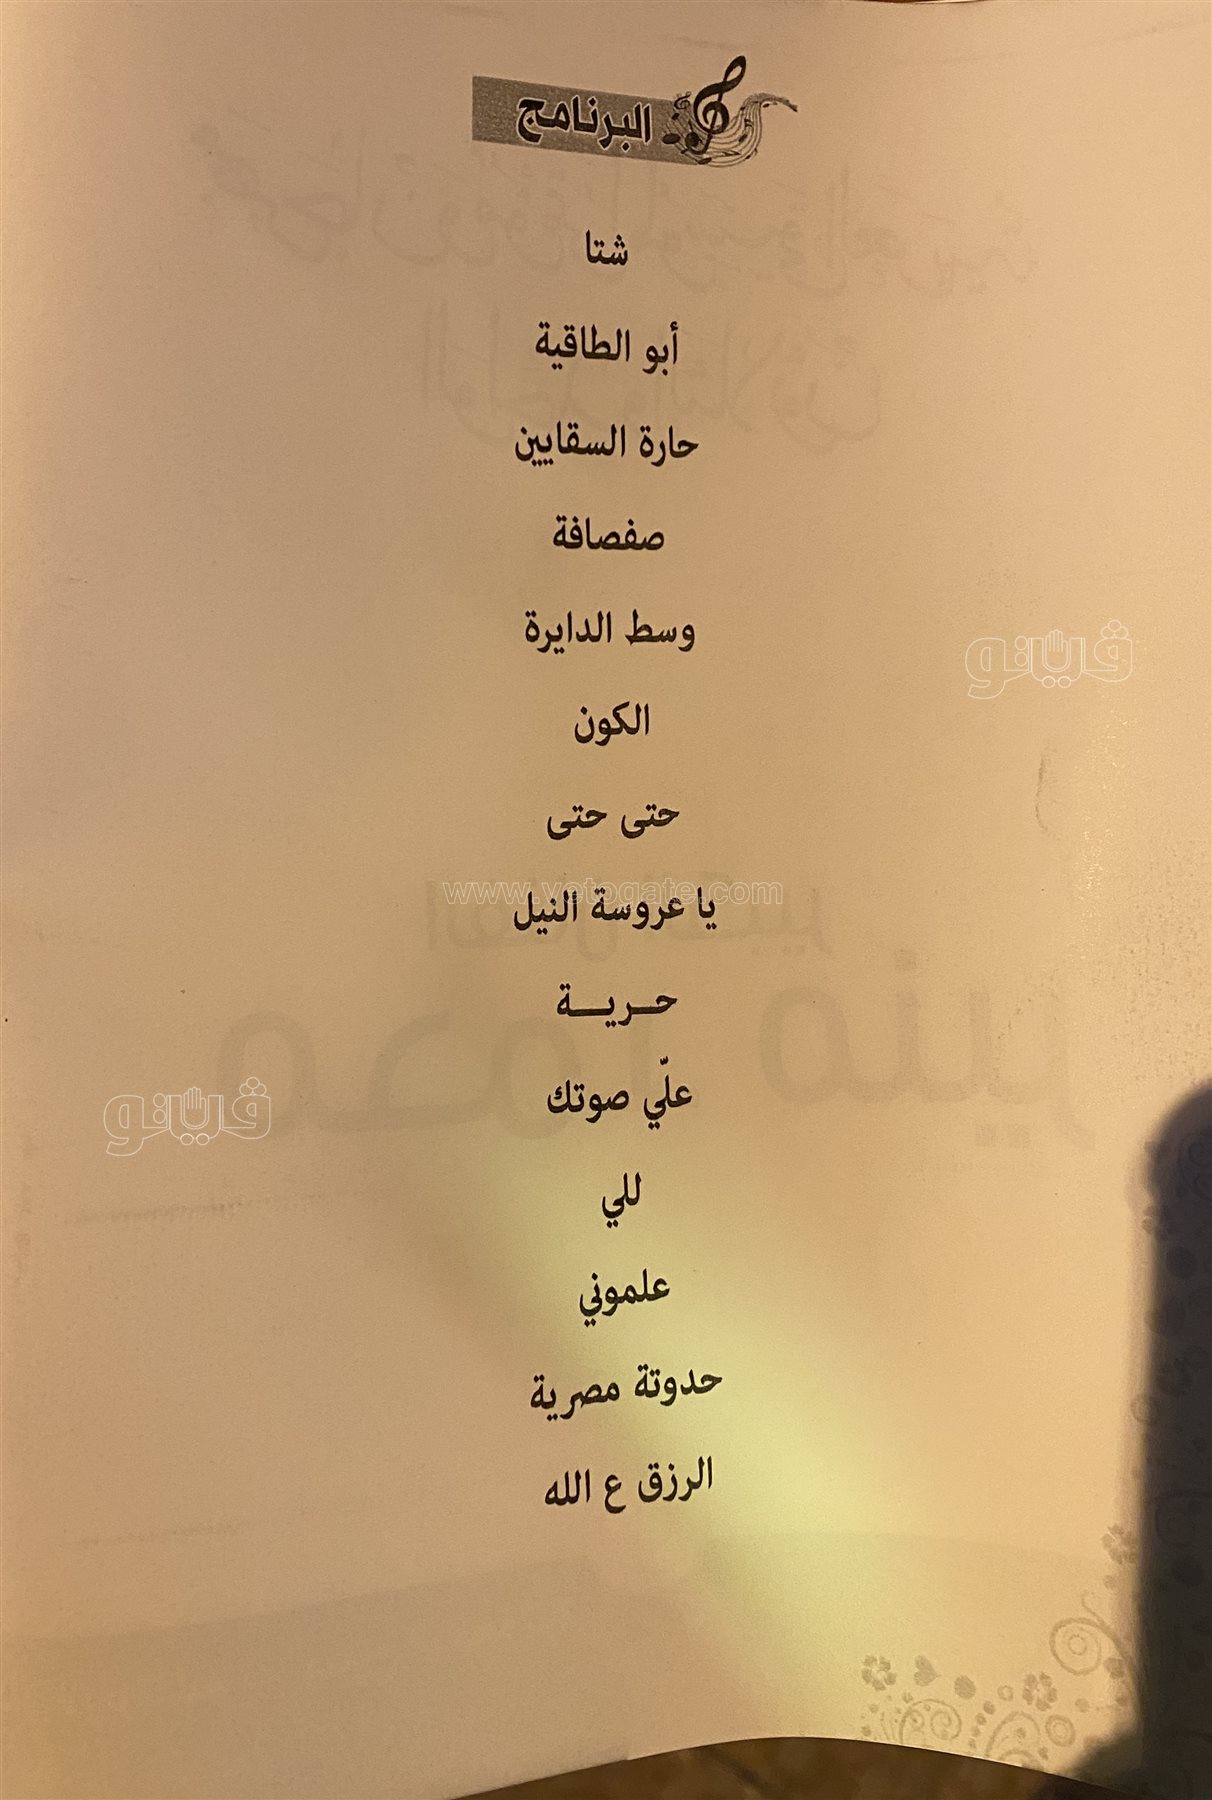 البرنامج
شتا
أبو الطاقية
حارة السقايين
صفصافة
وسط الدايرة
ڤيتو
الكون
حتى حتى
www.vetogate.com
يا عروسة النيل
حـريـة
علّي صوتك
ڤيتو
للي
علموني
حدوتة مصرية
الرزق ع الله